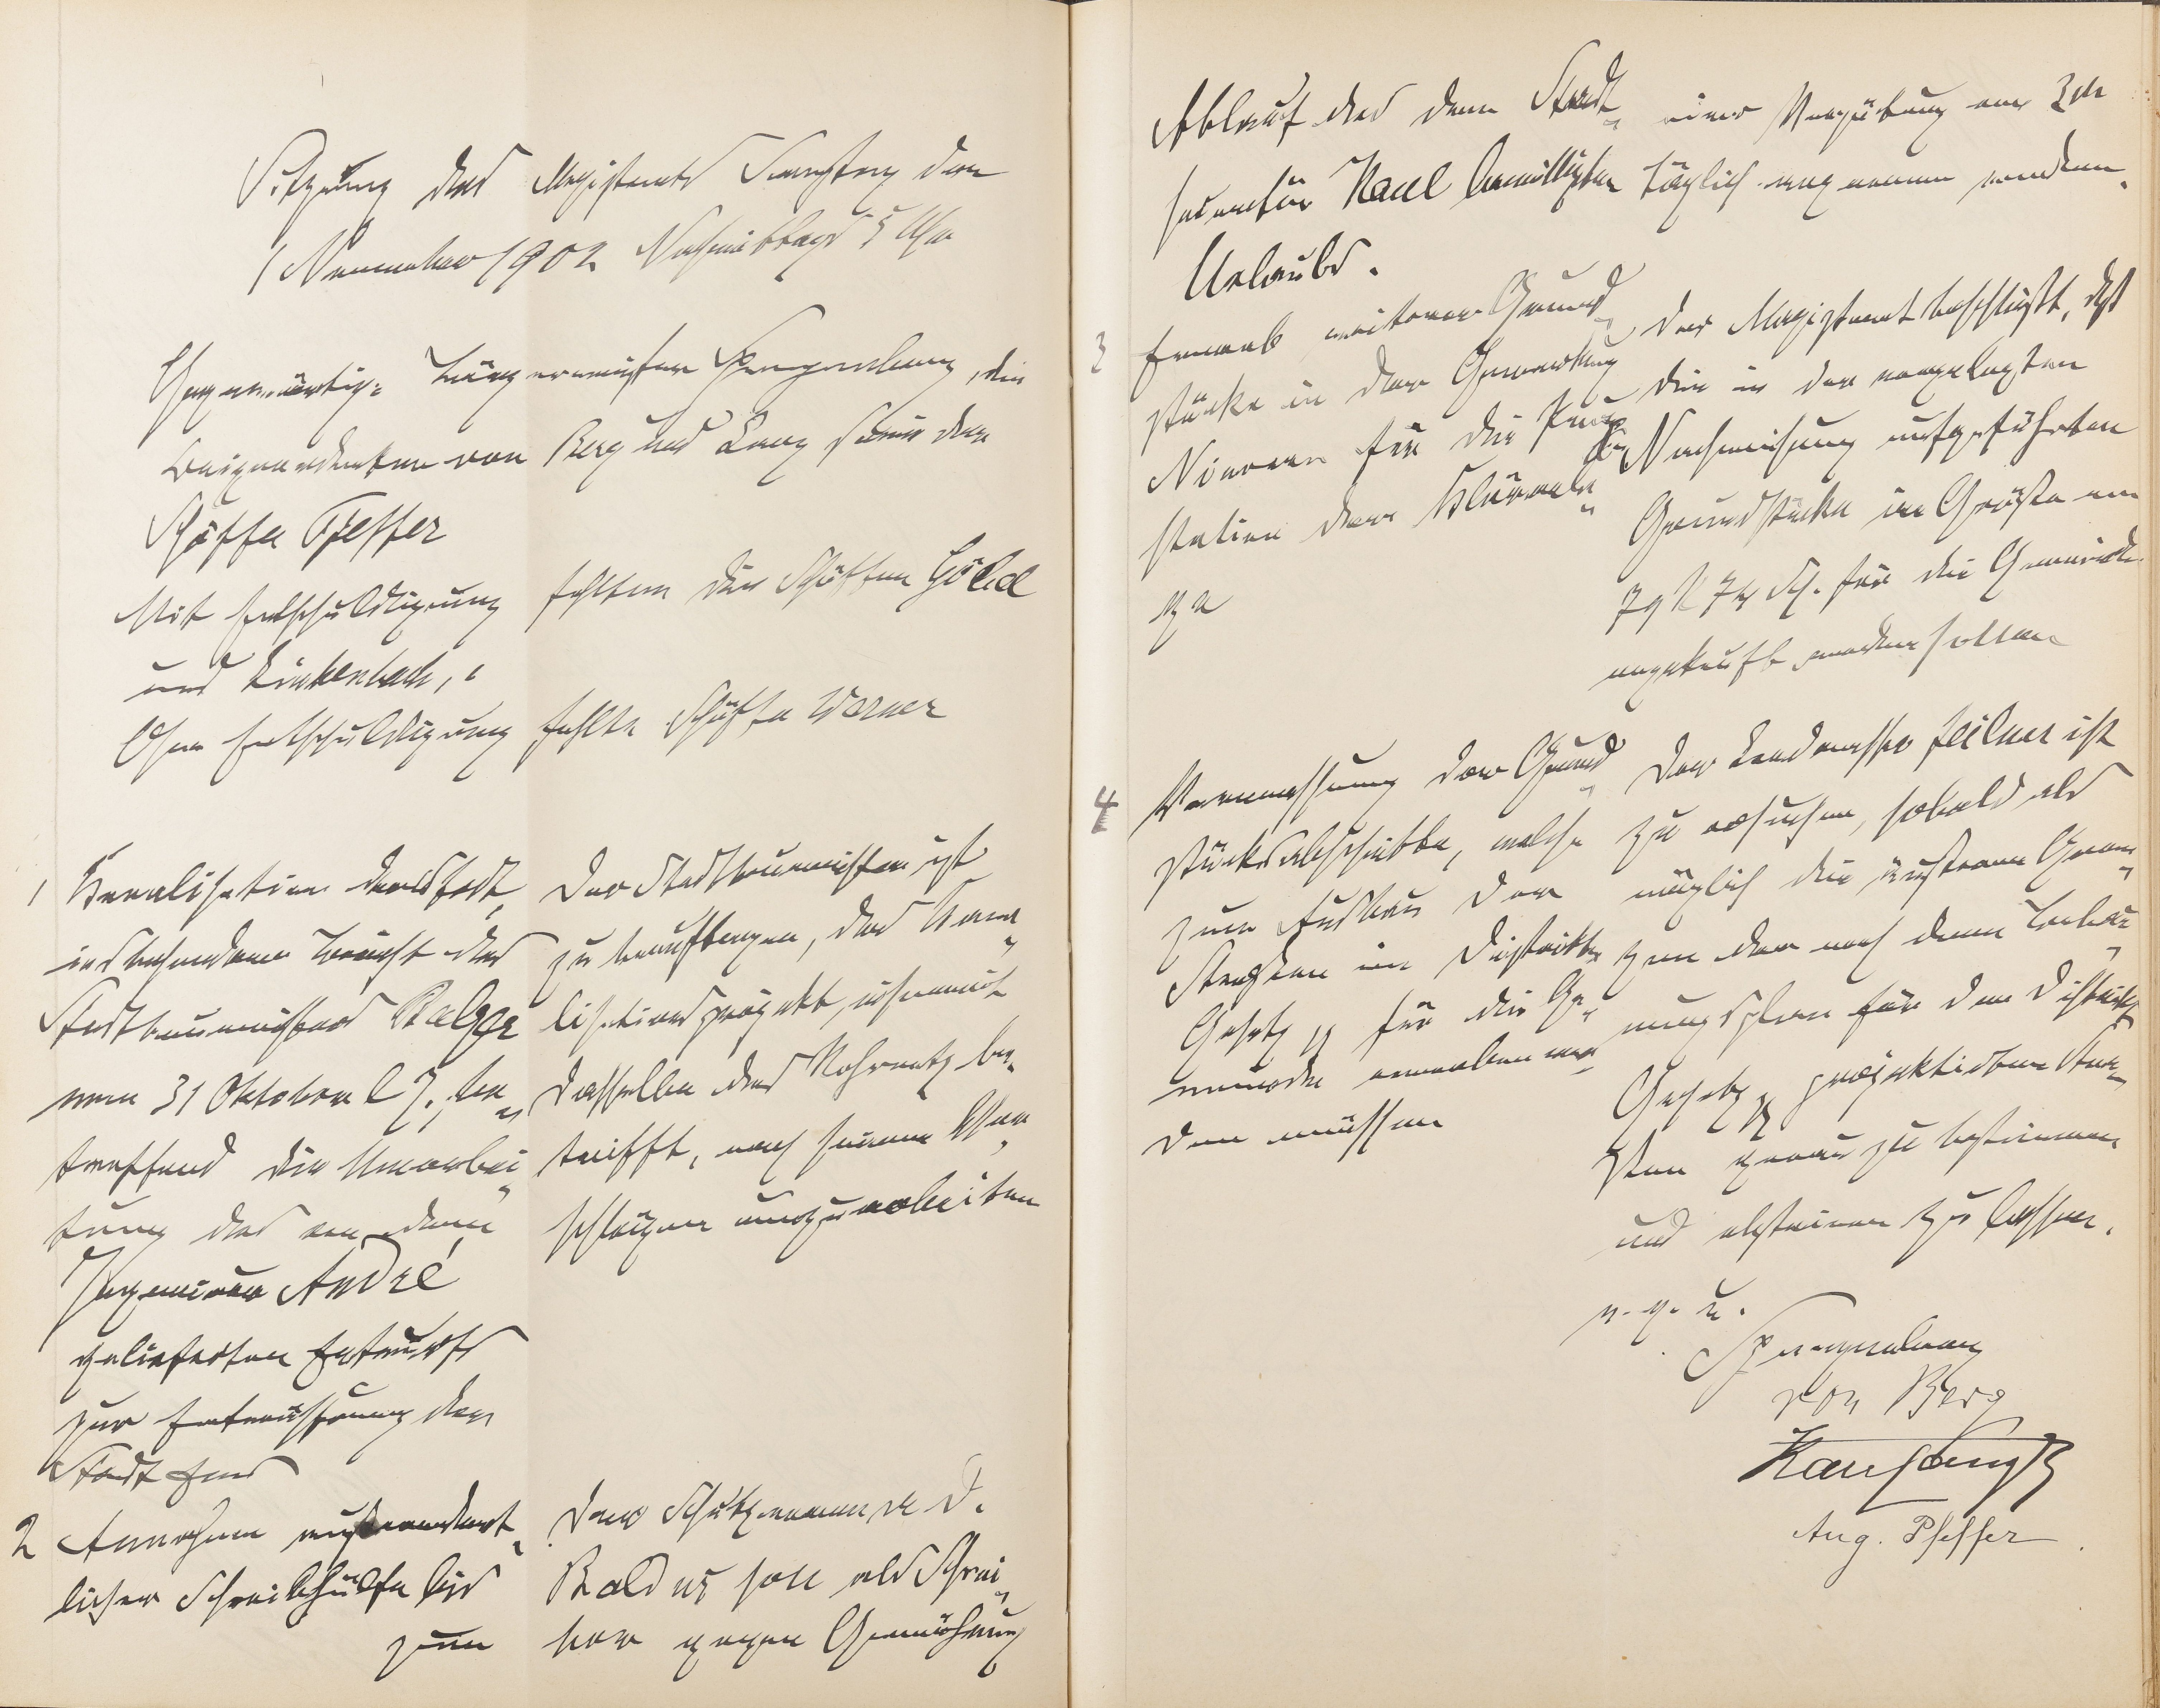 Sitzung des Magistrats Samstag den
1 November 1902 Nachmittags 5 Uhr
Gegenwärtig: Bürgermeister Spangenberg, die
Beigeordneten von Berg und Lang sowie der
Schöffe Pfeffer
Mit Entschuldigung fehlten die Schöffen Göbel
und Linkenbach,
Ohne Entschuldigung fehlte Schöffe Werner
1 Kanalisation der Stadt,
insbesondere Bericht des
Stadtbaumeisters Balzer
vom 31 Oktober l J. be„
treffend die Umarbei„
tung des von dem
Ingenieur André
gelieferten Entwurfs
zur Entwässerung der
Stadt
Der Stadtbaumeister ist
zu beauftragen, das Kana„
lisationsprojekt, insoweit
dasselbe das Rohrnetz be„
trifft, nach seinen Vor„
schlägen umzuarbeiten
2 Annahme außerordent„
licher Schreibhülfe bis
zum
Der Schutzmann a. D.
Baldus soll als Schrei„
ber gegen Gewährung
Ablauf des dem Stadt„
sekretär Kaul bewilligten
Urlaubs.
einer Vergütung von 3 M
täglich angenommen werden.
3 Erwerb weiterer Grund„
stücke in der Gemarkung
Nievern für die Pump„
station der Kläranla„
ge
Der Magistrat beschließt, daß
die in der vorgelegten
Nachweisung aufgeführten
Grundstücke in Größe von
79 R 74 Sch. für die Gemeinde
angekauft werden sollen
4 Vermessung der Grund„
stücksabschnitte, welche
zum Ausbau der
Straßen im Distrikte
Gesetz „ für die Ge„
meinde erworben wer„
den müssen
Der Landmesser Heilmer ist
zu ersuchen, sobald als
möglich die äußeren Gren„
zen der nach dem Bebau„
ungsplan für den Distrikt
Gesetz „ projektierten Stra„
ßen genau zu bestimmen
und absteinen zu lassen.
v. g. u.
Spangenberg
von Berg
Karl Lang
Aug. Pfeffer